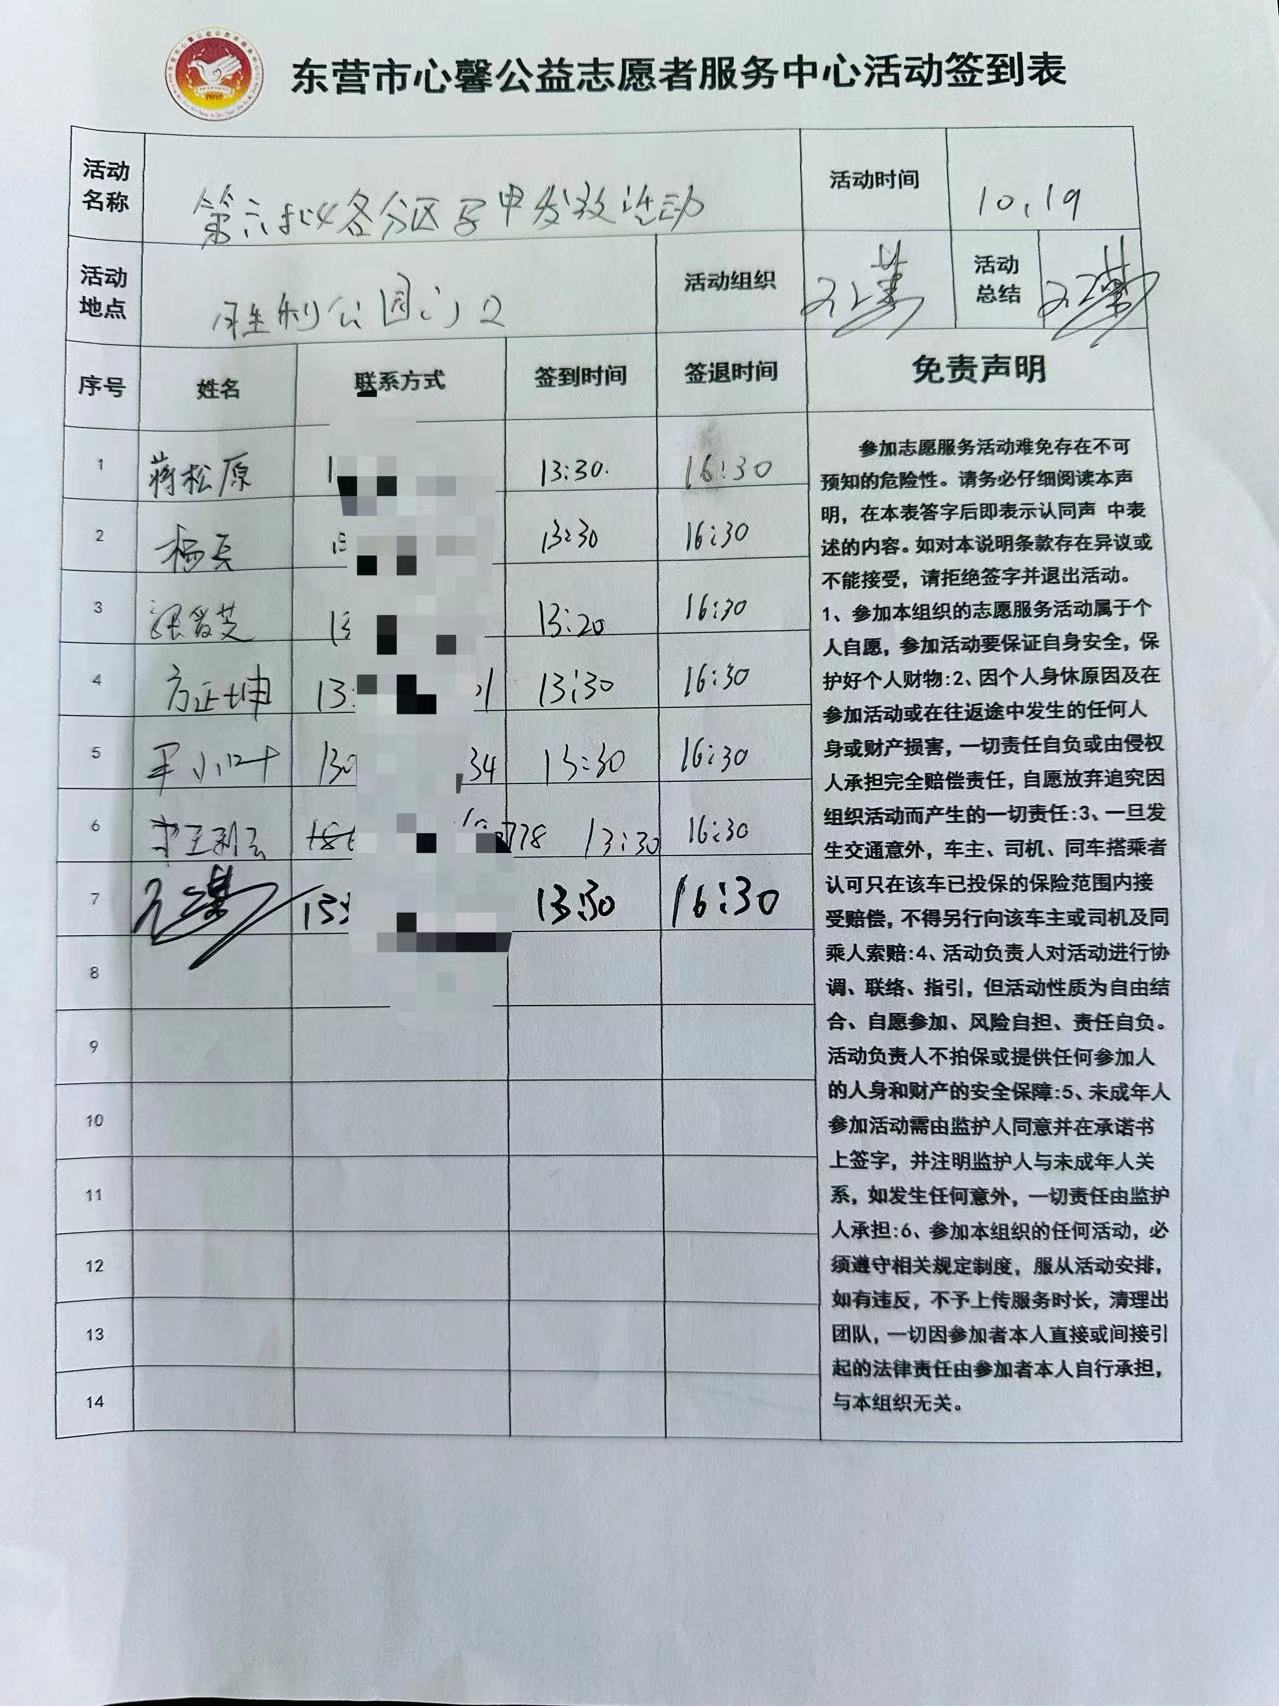 东营市心馨公益志愿者服务中心活动签到表
活动名称 第六批各分区马甲发放活动 活动时间 10.19
活动地点 胜利公园门口 活动组织 活动总结
序号 姓名 联系方式 签到时间 签退时间 免责声明
1 蒋松原 1 13:30. 16:30
2 杨 13:30 16:30
3 张爱芝 13 13:20 16:30
4 方正坤 13 1 13:30 16:30
5 小叶 130 34 13:30 16:30
6 王利云 778 13:30 16:30
7 13:30 16:30
8
9
10
11
12
13
14
参加志愿服务活动难免存在不可
预知的危险性。请务必仔细阅读本声
明，在本表答字后即表示认同声 中表
述的内容。如对本说明条款存在异议或
不能接受，请拒绝签字并退出活动。
1、参加本组织的志愿服务活动属于个
人自愿，参加活动要保证自身安全，保
护好个人财物:2、因个人身休原因及在
参加活动或在往返途中发生的任何人
身或财产损害，一切责任自负或由侵权
人承担完全赔偿责任，自愿放弃追究因
组织活动而产生的一切责任:3、一旦发
生交通意外，车主、司机、同车搭乘者
认可只在该车已投保的保险范围内接
受赔偿，不得另行向该车主或司机及同
乘人索赔:4、活动负责人对活动进行协
调、联络、指引，但活动性质为自由结
合、自愿参加、风险自担、责任自负。
活动负责人不拍保或提供任何参加人
的人身和财产的安全保障:5、未成年人
参加活动需由监护人同意并在承诺书
上签字，并注明监护人与未成年人关
系，如发生任何意外，一切责任由监护
人承担:6、参加本组织的任何活动，必
须遵守相关规定制度，服从活动安排，
如有违反，不予上传服务时长，清理出
团队，一切因参加者本人直接或间接引
起的法律责任由参加者本人自行承担，
与本组织无关。